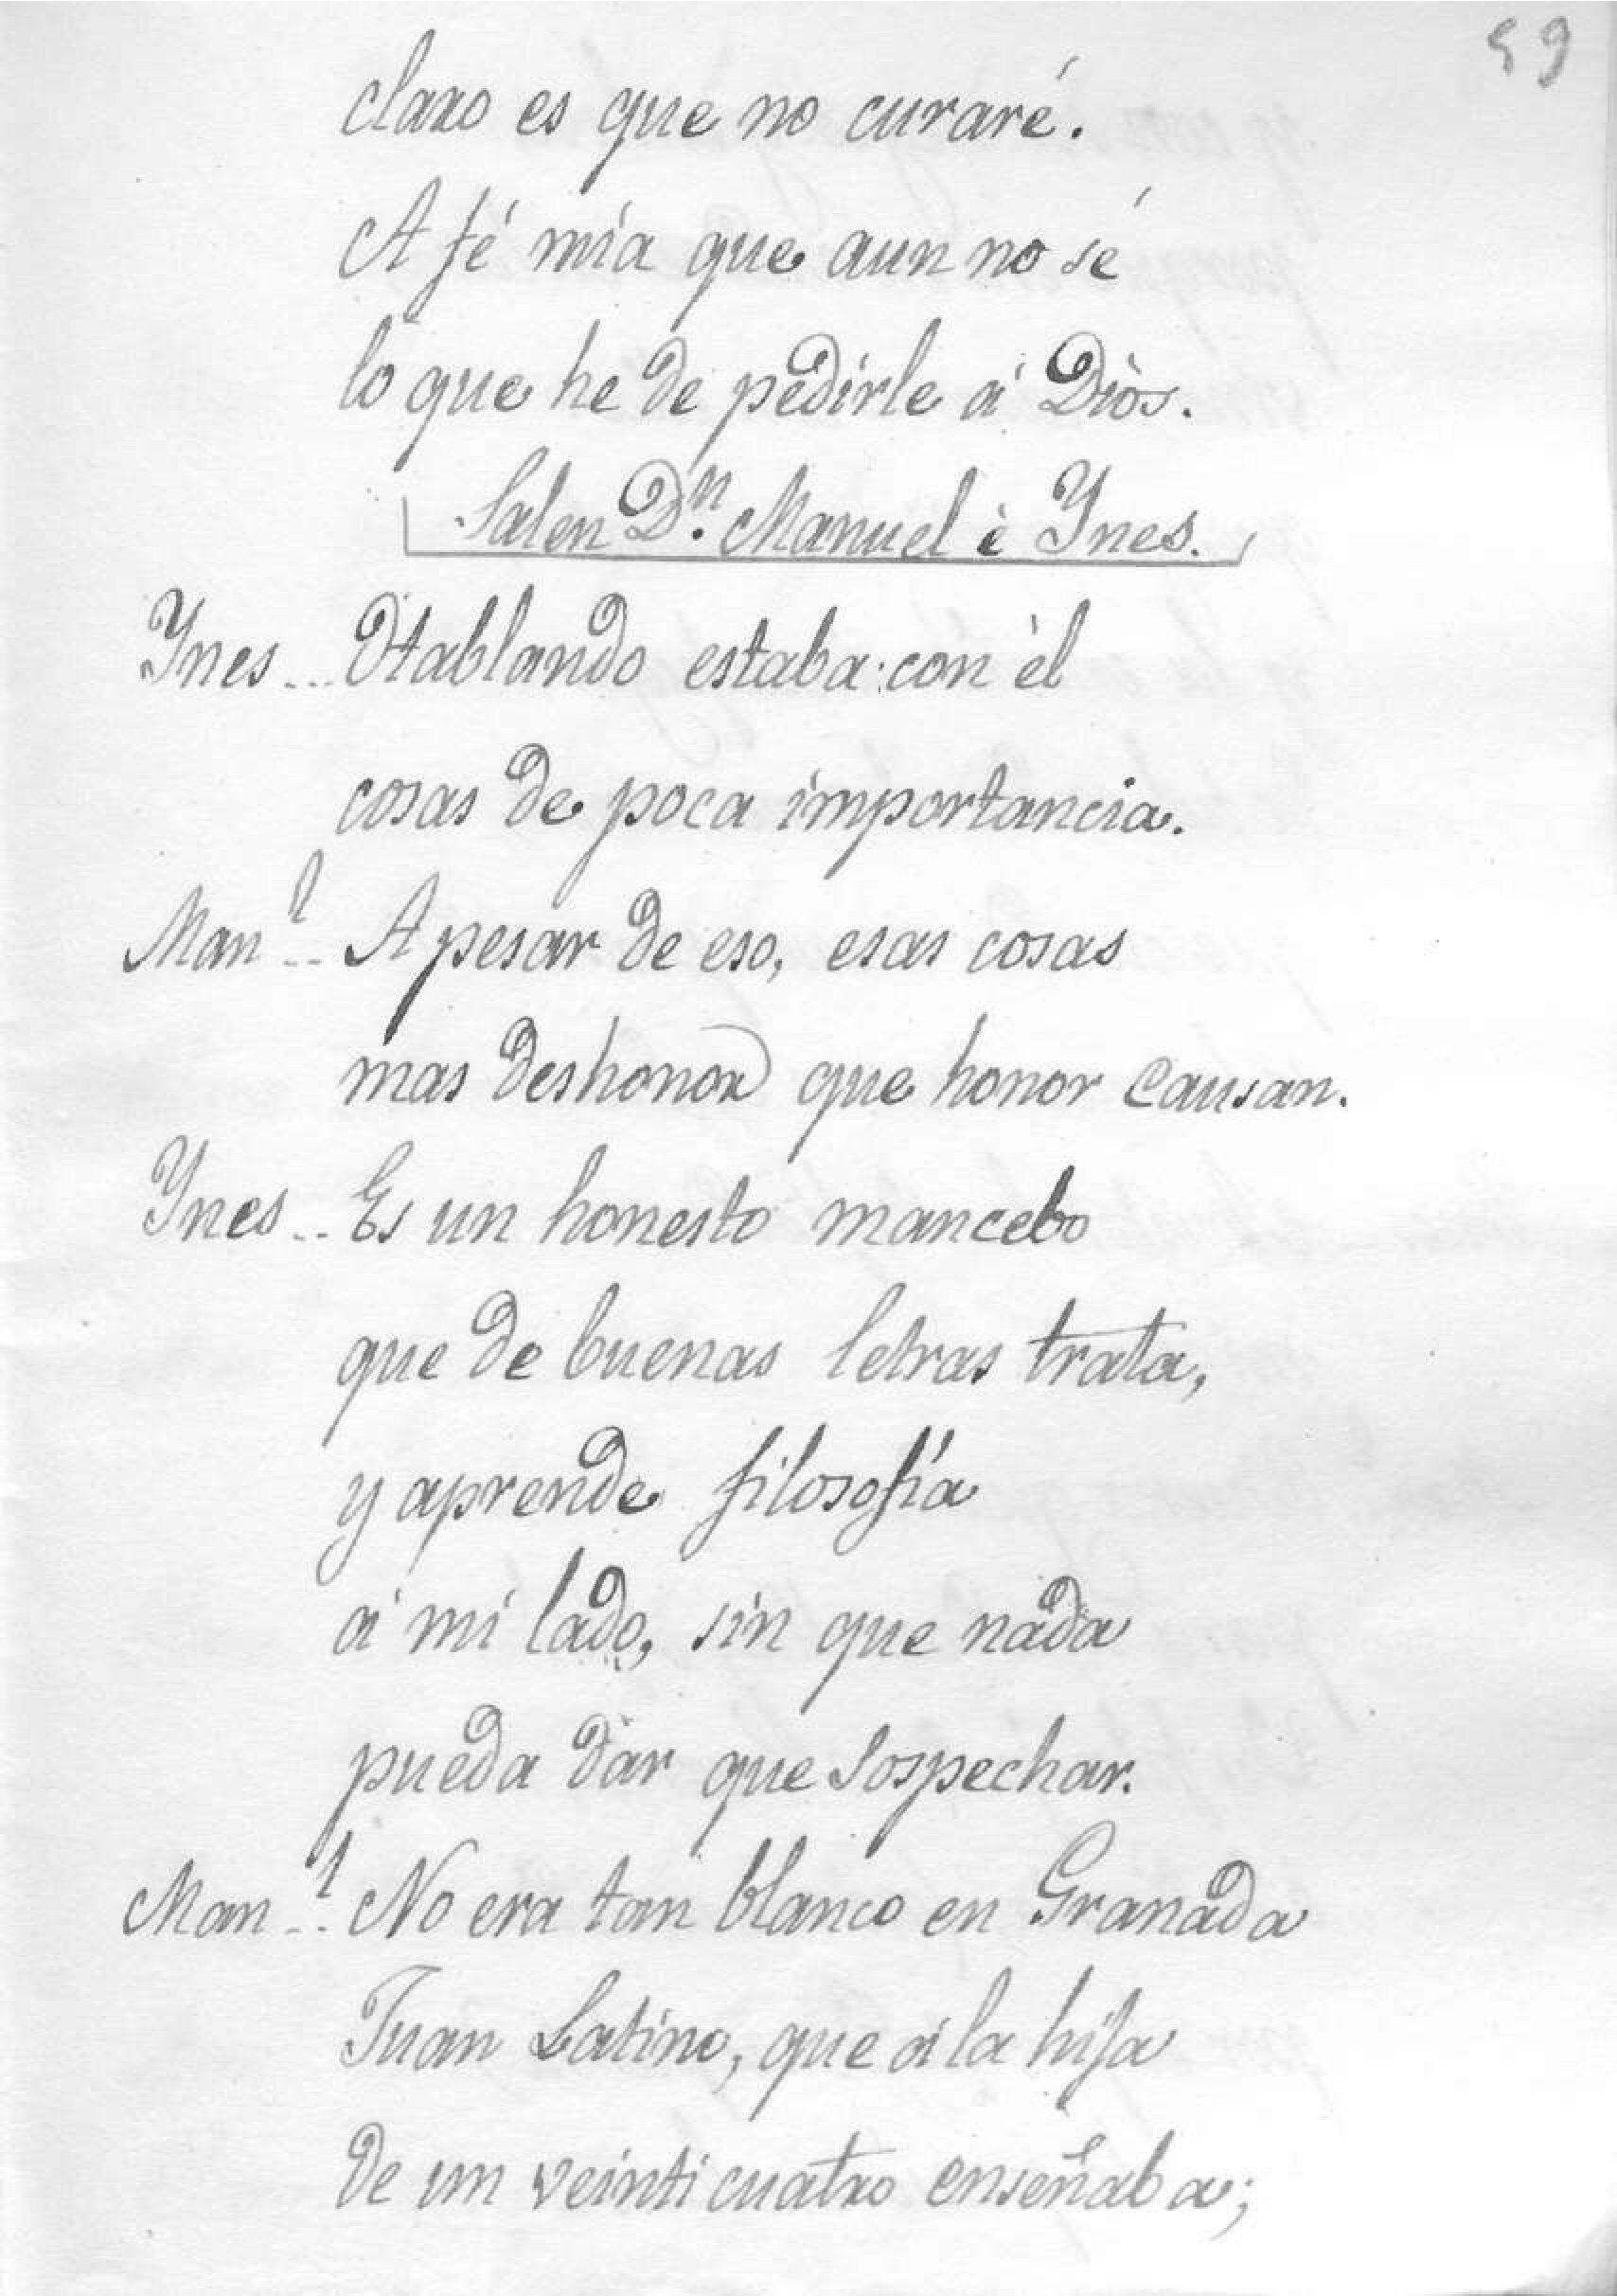 59
claro es que no curaré.
A fé mía que aun no sé
lo que he de pedirle á Dios.
Salen Dn. Manuel è Ynes.
Ynes... Hablando estaba con èl
cosas de poca importancia.
Manl... A pesar de eso, esas cosas
mas deshonor que honor causan.
Ynes... Es un honesto mancebo
que de buenas letras trata,
y aprende filosofía
á mi lado, sin que nada
pueda dar que sospechar.
Manl... No era tan blanco en Granada
Juan Latino, que á la hija
de un veinticuatro enseñaba;